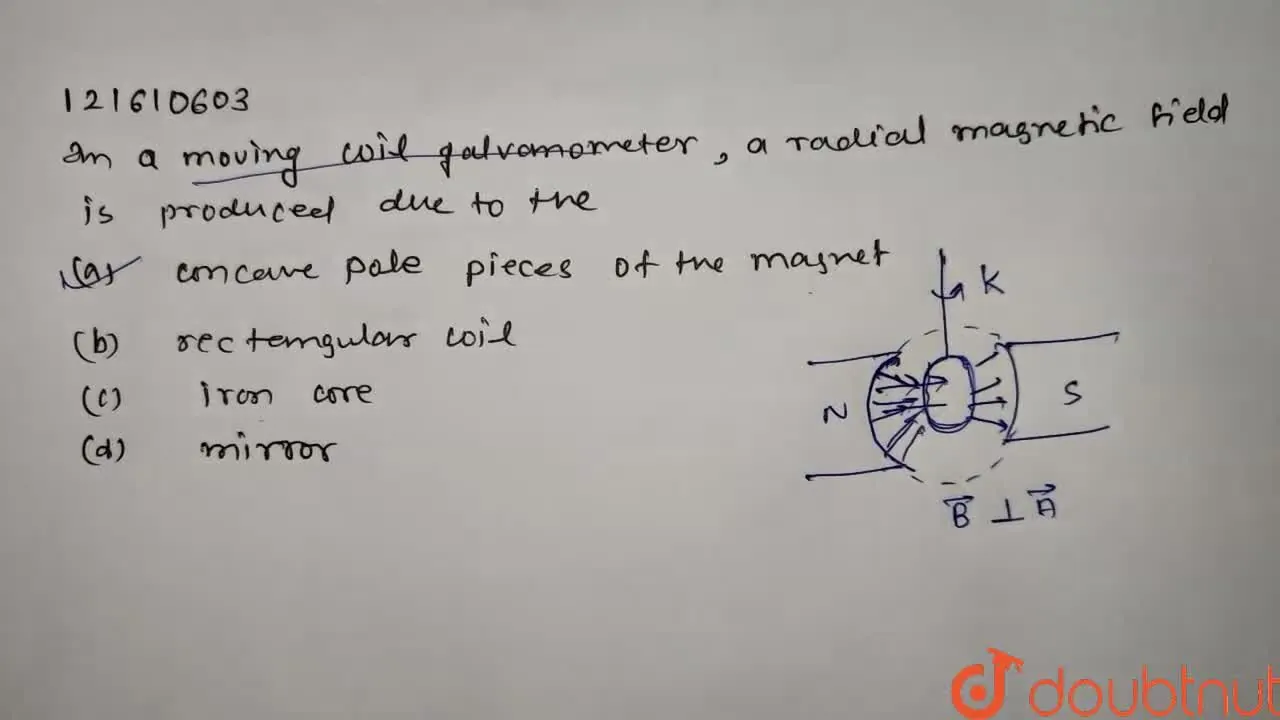 121610603
In a moving coil galvanometer, a radial magnetic field
is produced due to the
(a) concave pole pieces of the magnet
(b) rectangular coil
(c) iron core
(d) mirror
K
N
S
B ⊥ A
doubtnut